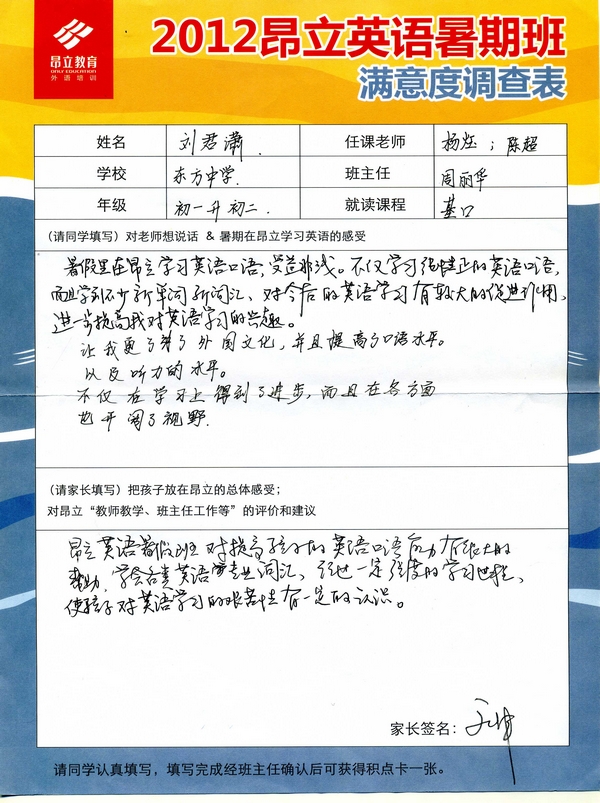 昂立教育
ONLY EDUCATION
外语培训
2012昂立英语暑期班
满意度调查表
姓名 刘君潇 任课老师 杨 ；陈超
学校 东方中学 班主任 周丽华
年级 初一升初二 就读课程 基口
（请同学填写）对老师想说话 & 暑期在昂立学习英语的感受
暑假里在昂立学习英语口语，受益非浅。不仅学习纯正的英语口语，
而且学到不少新单词新词汇，对今后的英语学习有较大的促进作用，
进一步提高我对英语学习的兴趣。
让我更了解了外国文化，并且提高了口语水平。
以及听力的水平。
不仅在学习上得到了进步，而且在各方面
也开阔了视野.
（请家长填写）把孩子放在昂立的总体感受；
对昂立“教师教学、班主任工作等”的评价和建议
昂立英语暑假班对提高孩子的英语口语能力有很大的
帮助，学会各类英语专业词汇，经过一定强度的学习过程，
使孩子对英语学习的艰苦性有一定的认识。
家长签名：
请同学认真填写，填写完成经班主任确认后可获得积点卡一张。